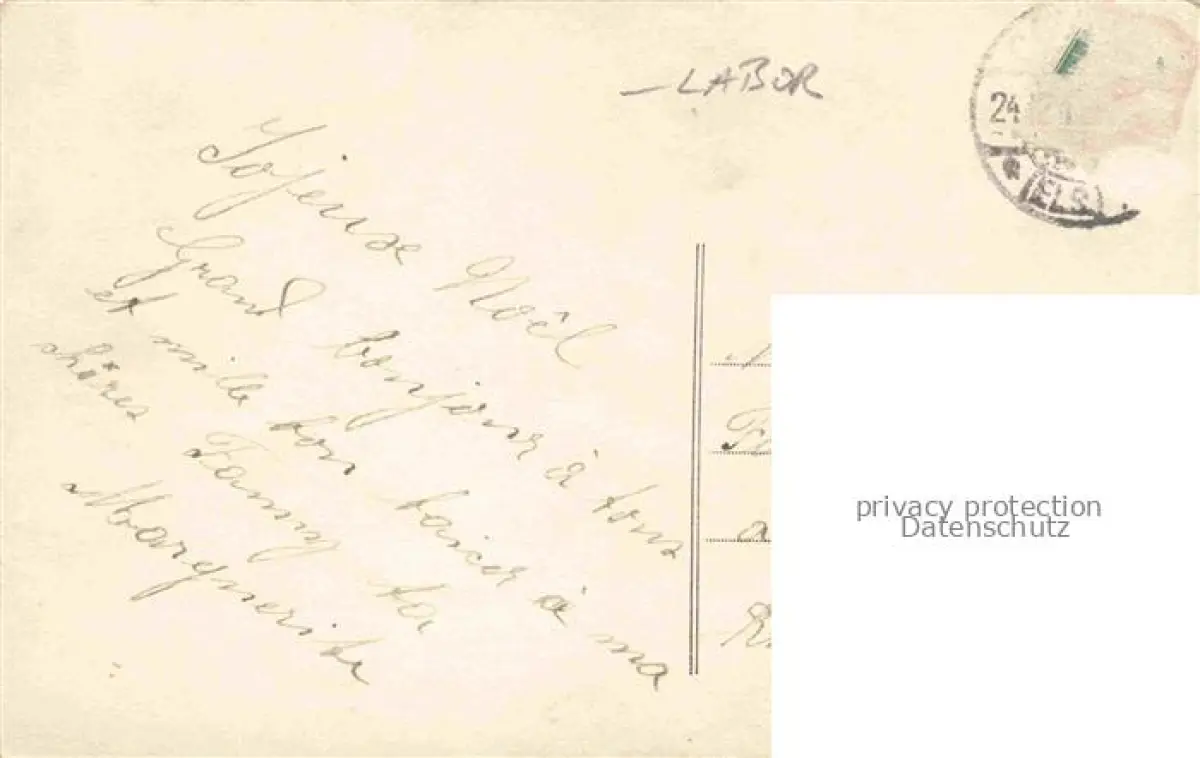 – LABOR
24
(ELS)
Joyeuse Noêl
Grand bonjour à tous
et mille bon baiser à ma
chères Fanny ta
Marguerite
privacy protection
Datenschutz